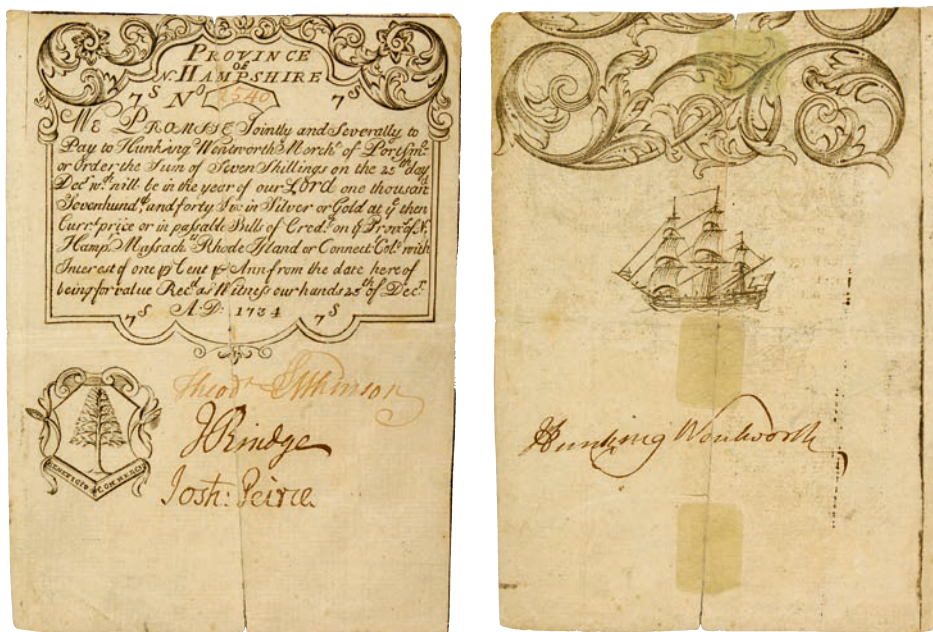 PROVINCE
OF
N. HAMPSHIRE
7S No 2540 7S
WE PROMISE Jointly and Severally to
Pay to Hunking Wentworth Merchᵗ of Portsmᵒ
or Order the Sum of Seven Shillings on the 25th day
Decr wch will be in the year of our Lord one thousan
Sevenhundd and forty Six in Silver or Gold at ye then
Currt price or in passable Bills of Credt on ye Prove of N.
Hamp. Massachts Rhode Island or Connect. Cols with
Interest of one p Cent p Ann from the date here of
being for value Recd as Witness our hands 25th of Decr.
7S A:D: 1734 7S
Theodr Atkinson
J Rindge
Josh: Peirce
BENEFICIO COMMERCII
Hunking Wentworth